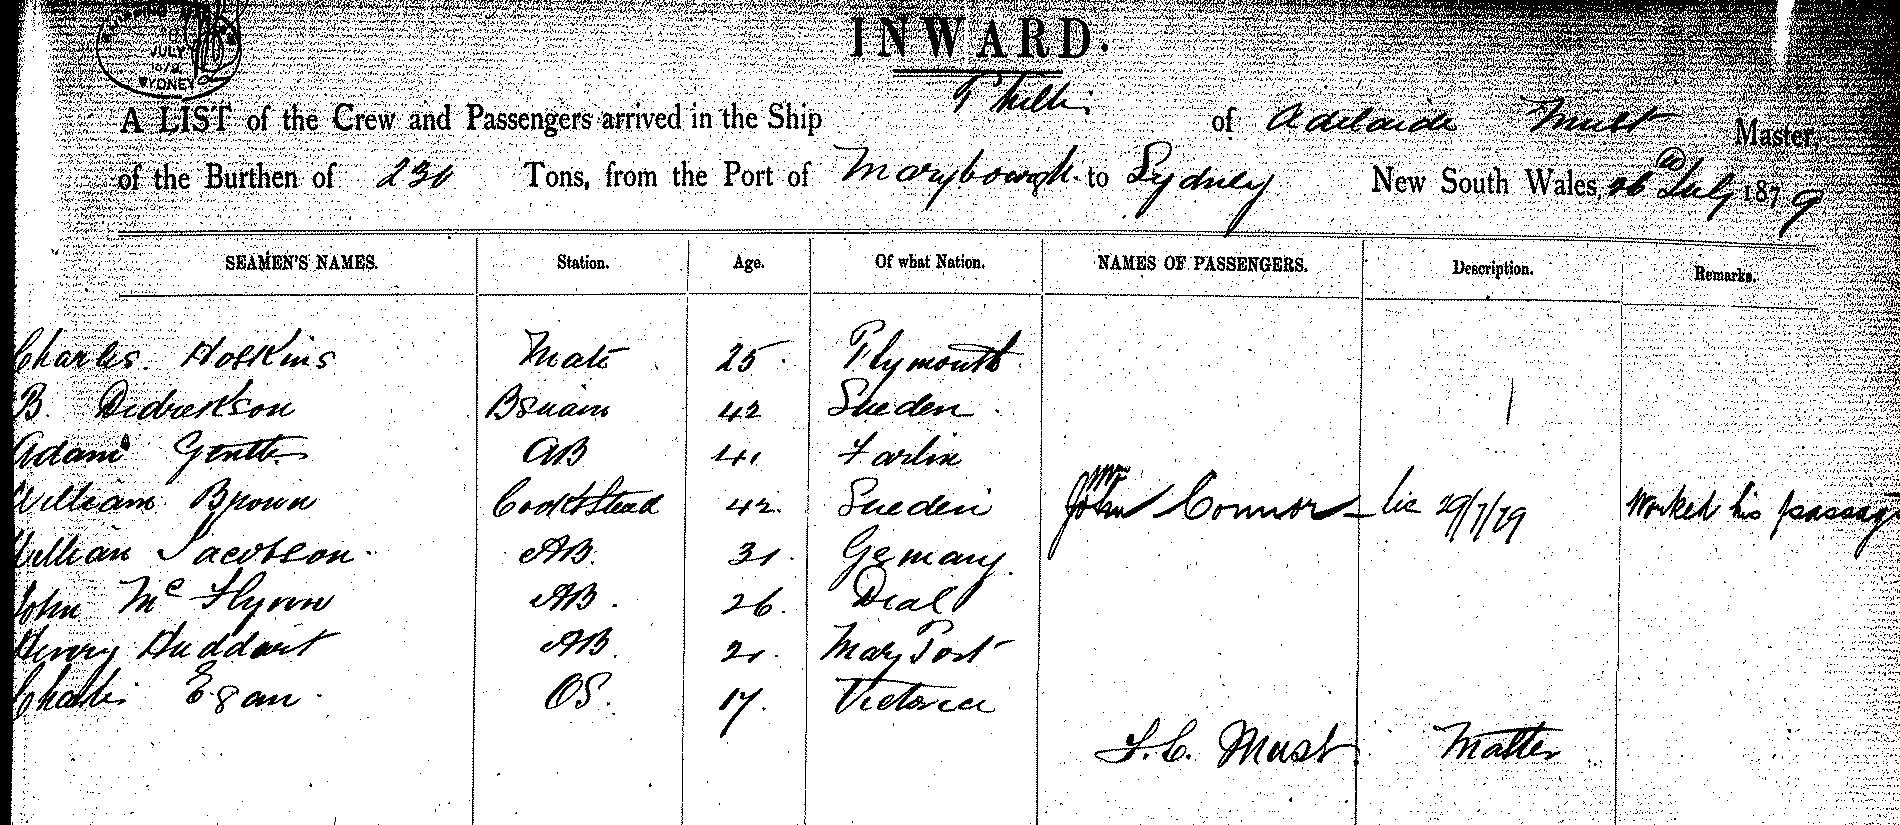 JULY
SYDNEY
INWARD.
A LIST of the Crew and Passengers arrived in the Ship of Adelaide Must Master,
of the Burthen of 230 Tons, from the Port of Marybough. to Sydney New South Wales, 26 July 1879
SEAMEN'S NAMES. Station. Age. Of what Nation. NAMES OF PASSENGERS. Description. Remarks.
Charles. Hoskins Mate 25. Plymouth.
B. Didrickson Bsuain 42 Sueden.
Adam Gentle AB 41 Farlin
William Brown Cook & Stead 42. Sueden John Connor - lic 29/7/79 Worked his passage
William Jacobson. AB. 31. Gemany.
John Mc Flynn AB. 26. Deal
Henry Huddart AB. 21. Mary Port
Charles Egan. OS. 17. Victoria
F. C. Must. Master